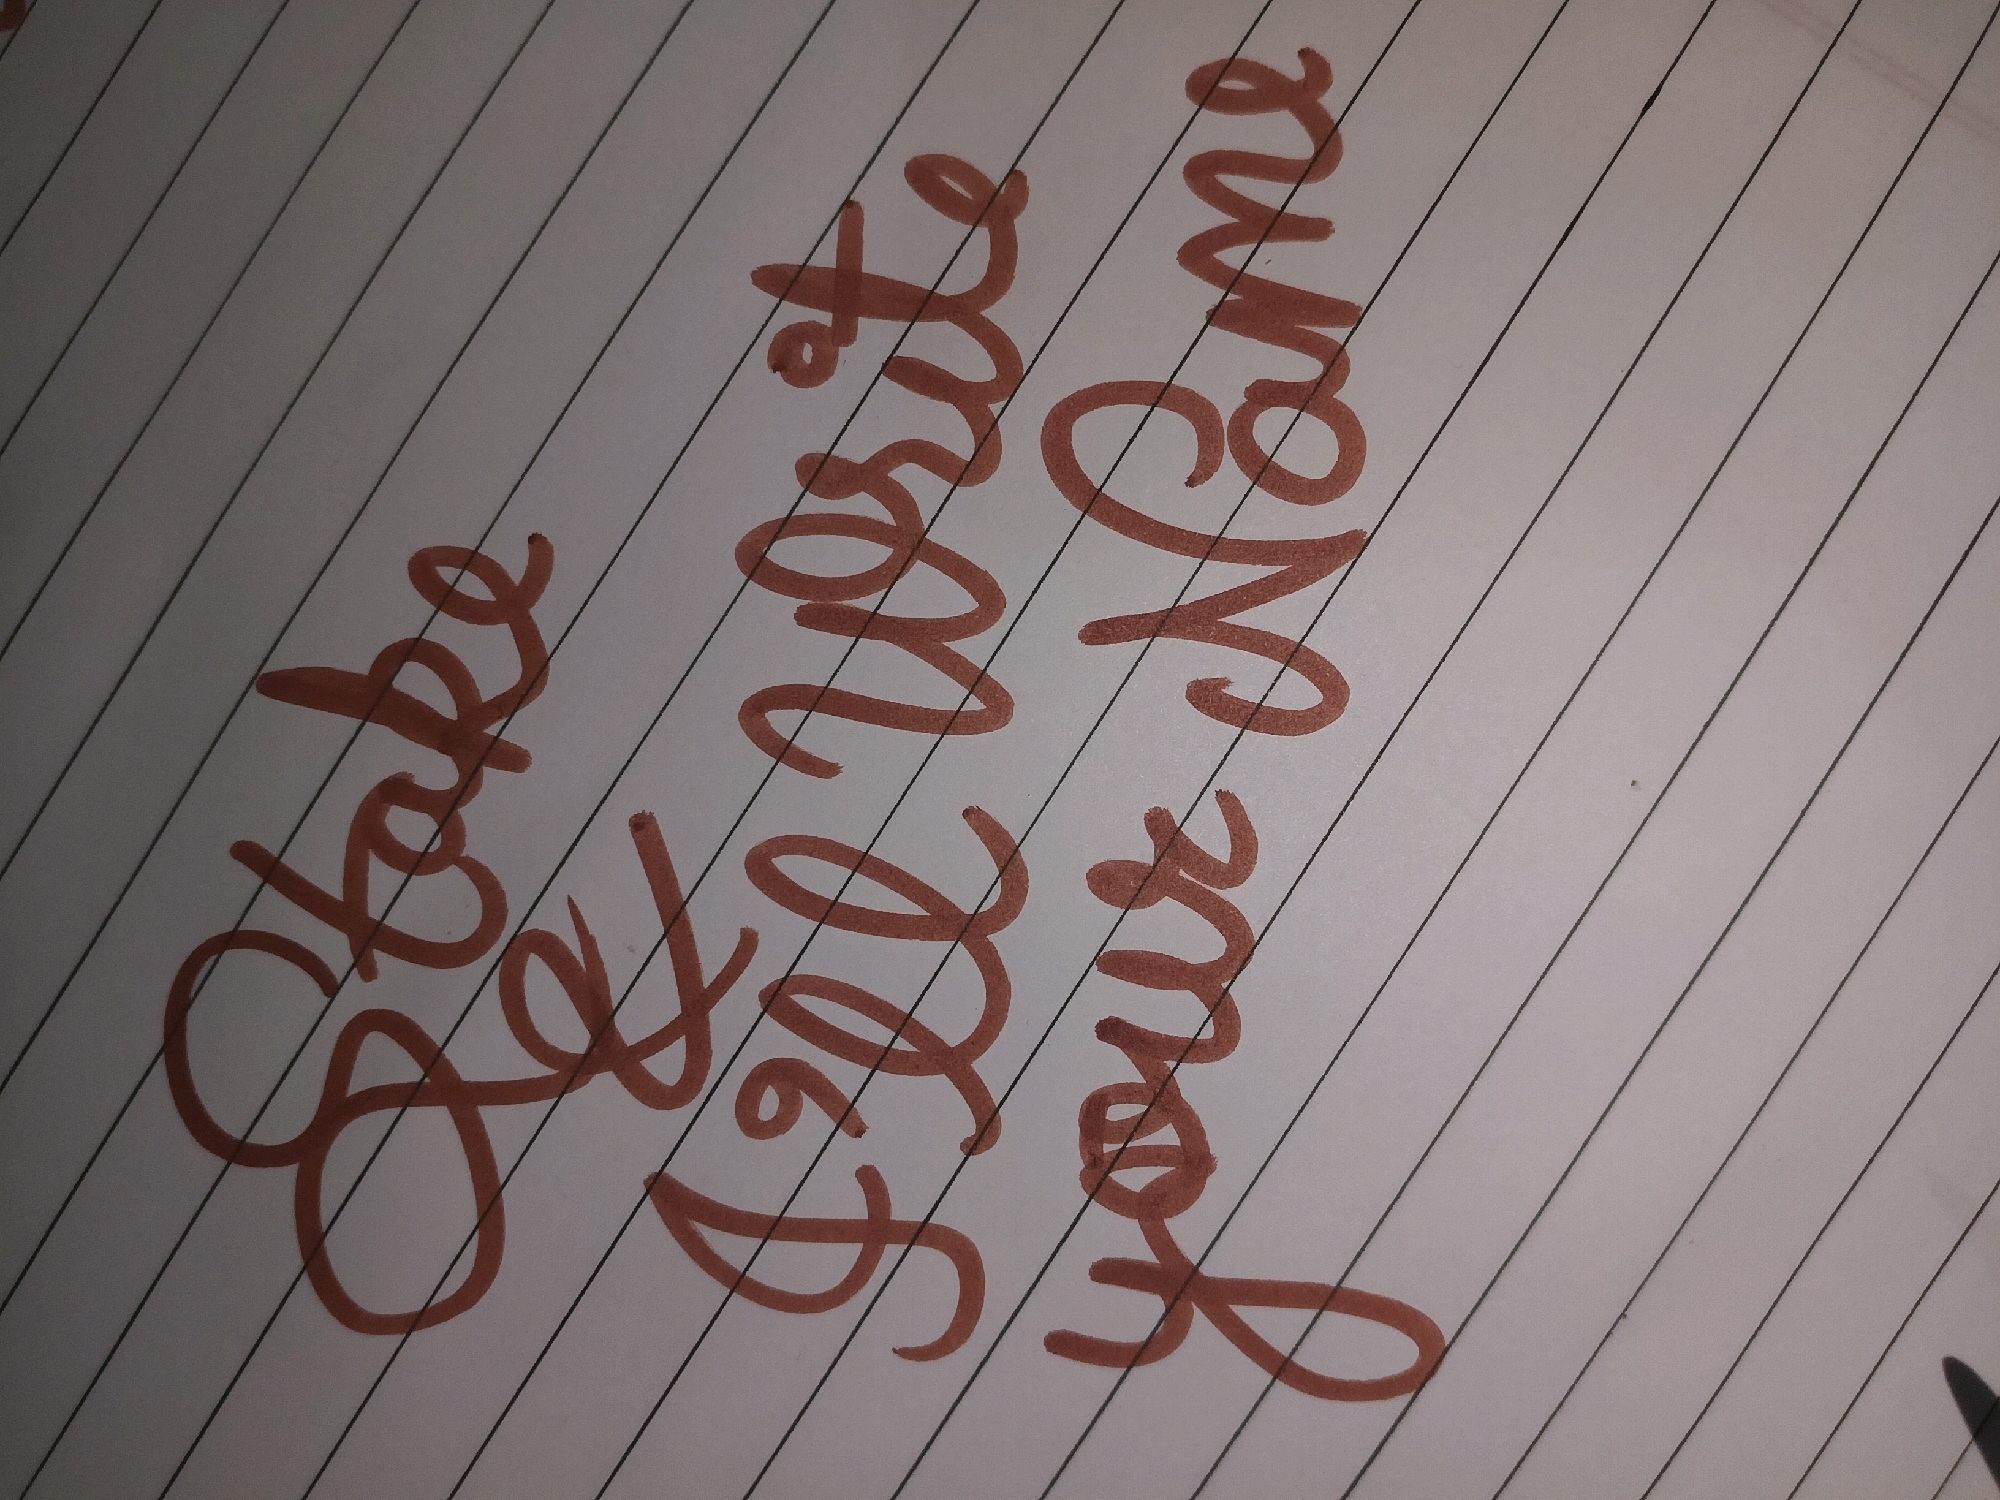 Stake
&
I'll Write
your Name